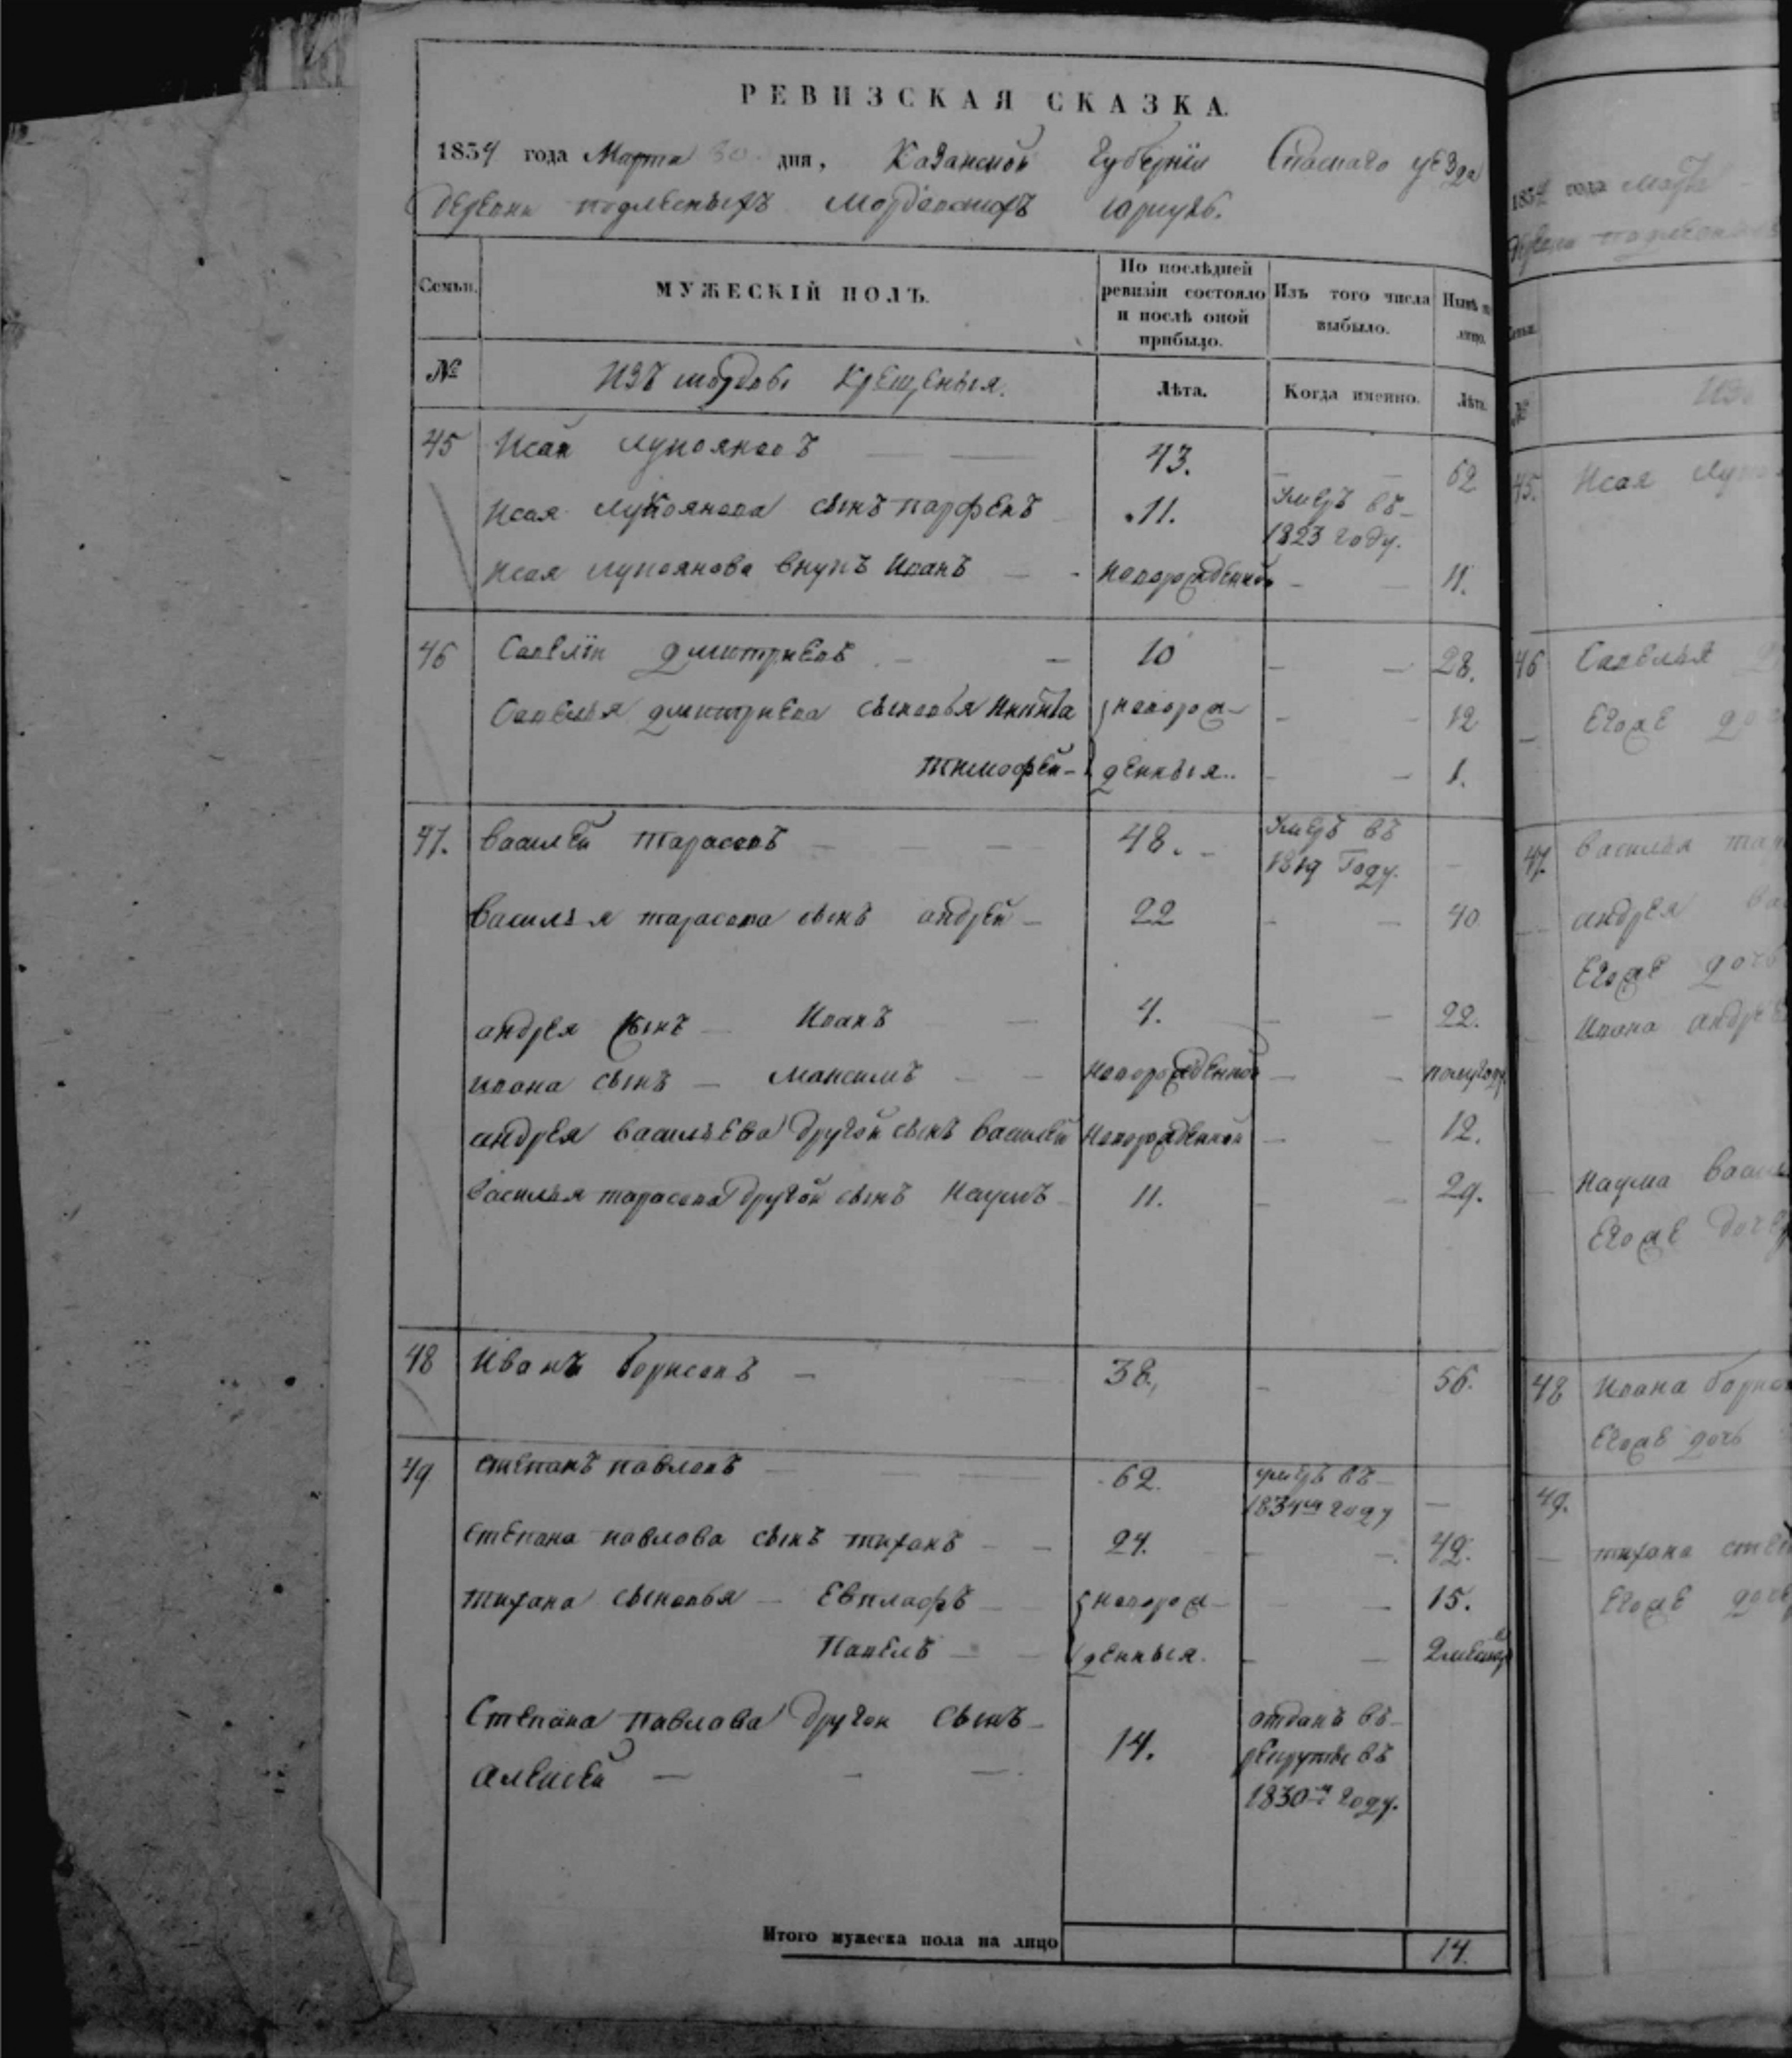 РЕВИЗСКАЯ СКАЗКА.
1834 года Марта 30 дня, Казанской Губернïи Спаскаго уезда
деревни подлесныхъ Мордовскихъ юркуль.
Семьи.
МУЖЕСКІЙ ПОЛЪ.
По послѣдней
ревизіи состояло
и послѣ оной
прибыло.
Изъ того числа
выбыло.
Нынѣ на
лицо.
№
Изъ мордвы Крещеныя.
Лѣта.
Когда именно.
Лѣта.
45 Исай лукояновъ 43. 62
Исая лукоянова сынъ парфенъ 11. Умеръ въ 1823 году.
Исая лукоянова внукъ Иванъ новорожденной 11.
46 Савелïй дмитриевъ 10 28.
Савелья дмитриева сыновья Никита новорож- 12
тимофей денныя.. 1.
47. василей тарасовъ 48. Умеръ въ 1819 Году.
василья тарасова сынъ андрей 22 40
андрея сынъ Иванъ 4. 22.
ивана сынъ Максимъ новорожденной полугоду
андрея васильева другой сынъ василей новорожденной 12.
василья тарасова другой сынъ Наумъ 11. 29.
48 Иванъ борисовъ 38. 56.
49 степанъ павловъ 62. умеръ въ 1834м году
степана павлова сынъ тиханъ 24. 42.
тихана сыновья Евплафъ новорож- 15.
Павелъ денныя.
Степана павлова другой сынъ
алексей 14. отданъ въ рекруты въ 1830м году.
Итого мужеска пола на лицо 14.
1834 года Марта
деревни подлесныхъ
Семьи.
№ Изъ
45. Исая
46 Савелья
Егоже
47. василья
андрея
Егоже дочь
Ивана андрее
Наума васил
Егоже дочер
48 Ивана борисо
Егоже дочь
49.
тихана степ
Егоже дочь